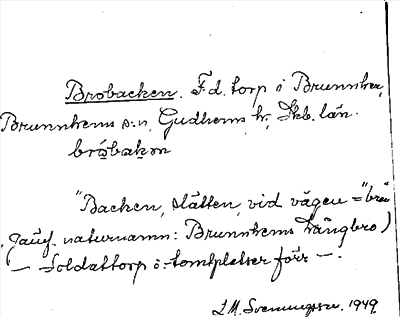 Brobacken. F.d. torp i Brunnhem,
Brunnhems s:n, Gudhems hr, Skb. län.
bròbakən
"Backen, slätten, vid vägen = "bron
Jämf. naturnamn: Brunnhems Långbro)
— Soldattorp o. tomtplatser förr —.
L.M. Svenungsson. 1949.